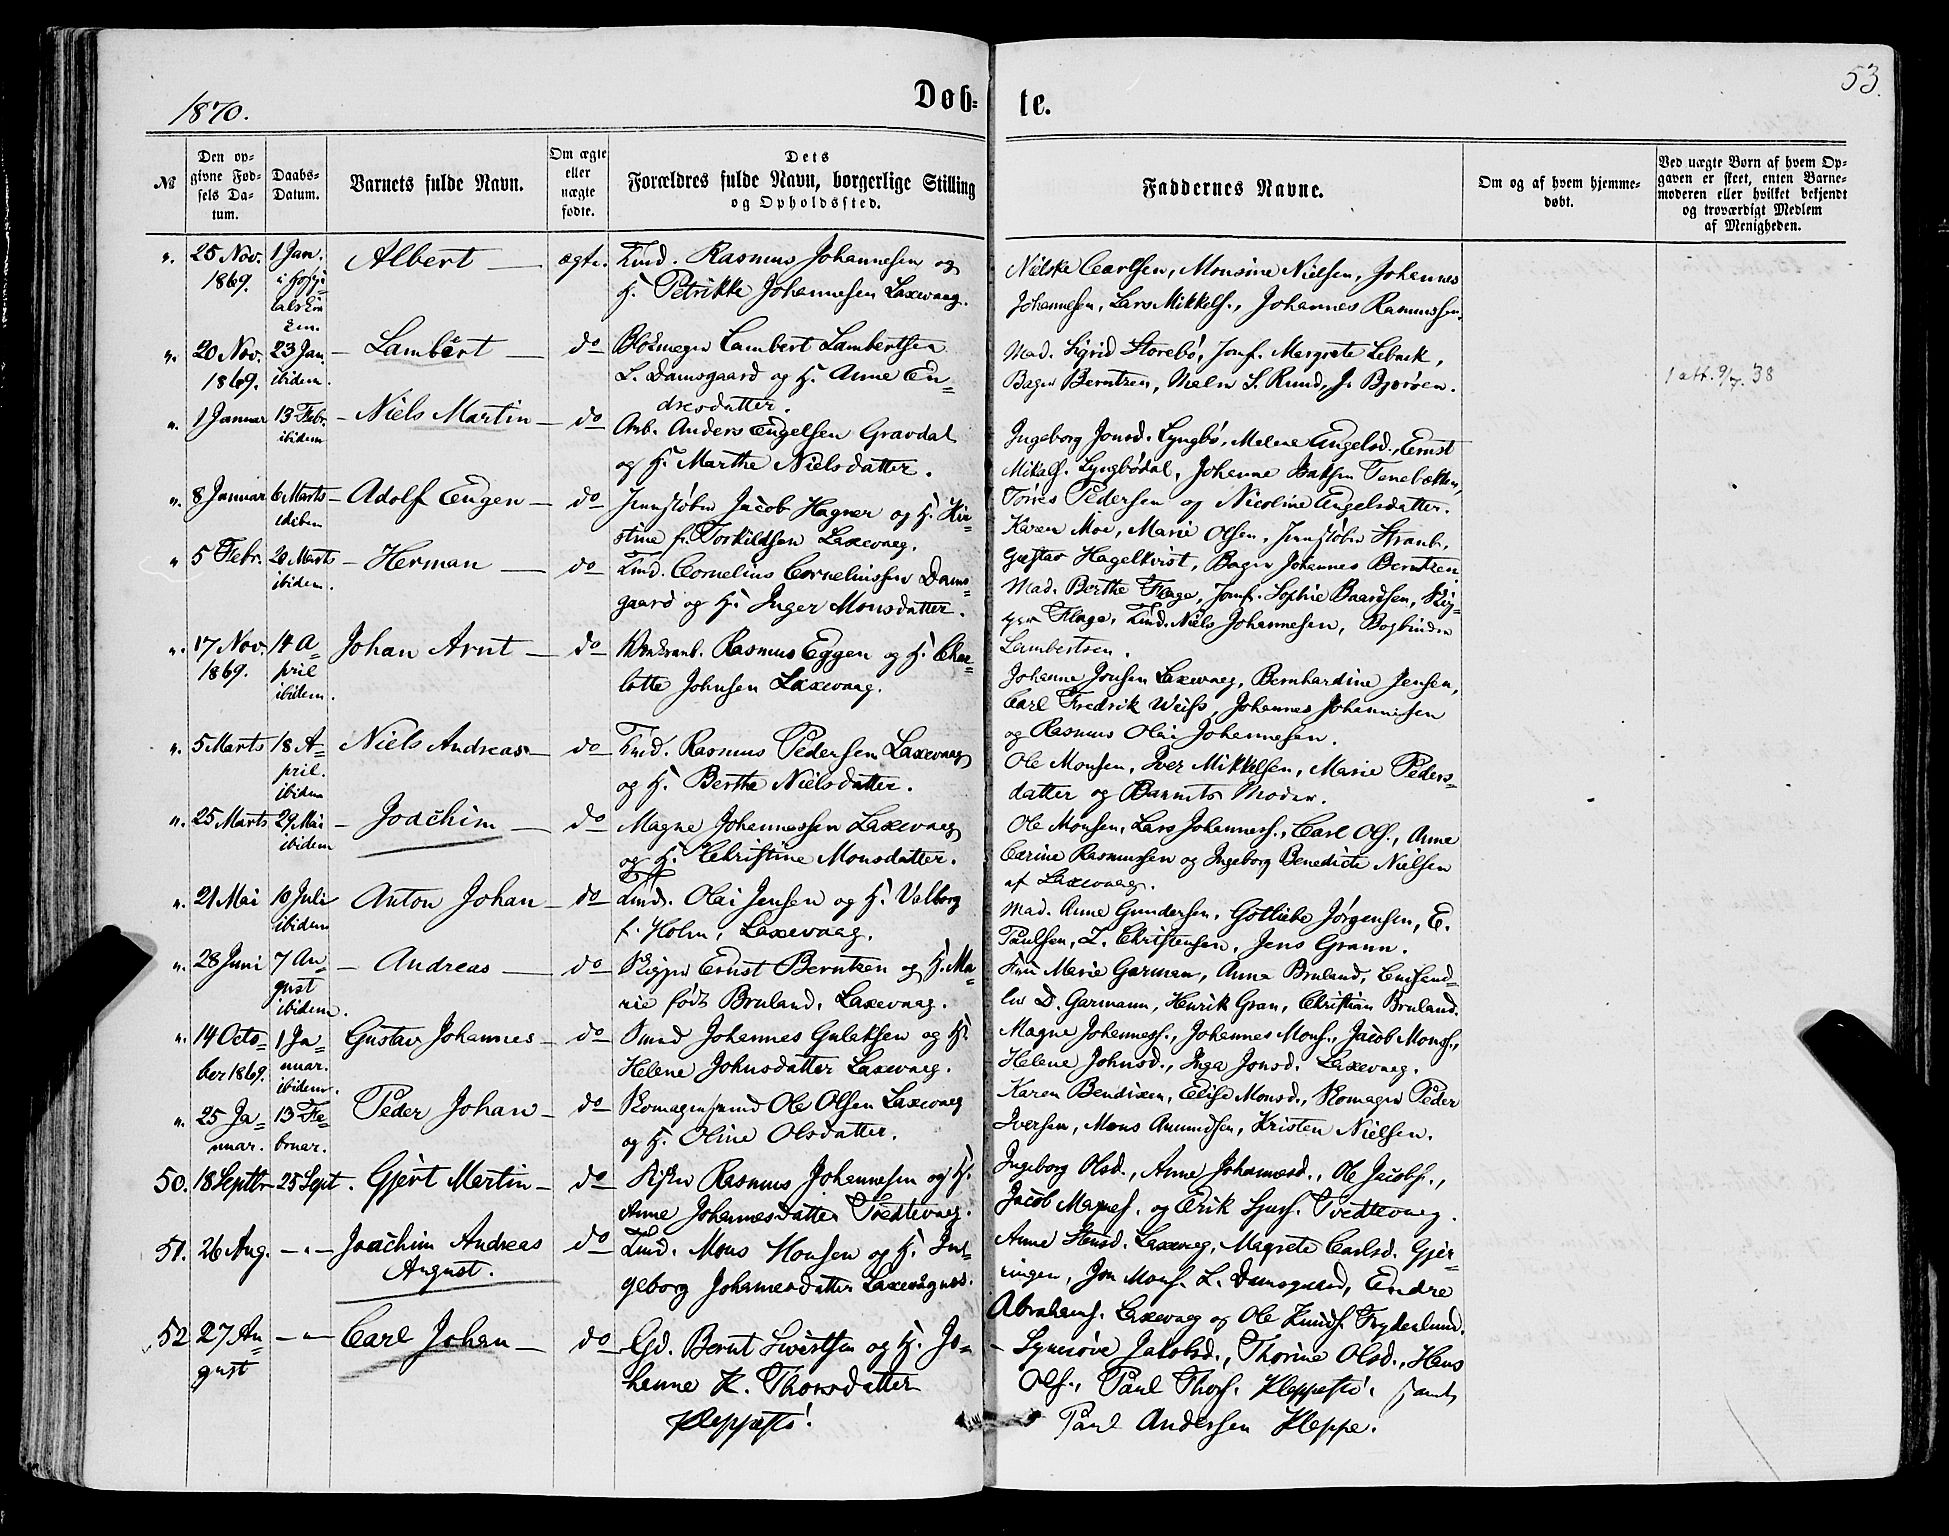 1870.
Døb-
te.
53.
№
Den op-
givne Fød-
sels Da-
tum.
Daabs-
Datum.
Barnets fulde Navn.
Om ægte
eller
uægte
fødte.
Dets
Forældres fulde Navn, borgerlige Stilling
og Opholdssted.
Faddernes Navne.
Om og af hvem hjemme-
døbt.
Ved uægte Børn af hvem Op-
gaven er skeet, enten Barne-
moderen eller hvilket bekjendt
og troværdigt Medlem
af Menigheden.
25 Nov. 1 Jan. Albert ægte. Rasmus Johannesen og
1869.
H. Petrikke Johannesen Laxevaag.
Nielske Carlsen, Monsine Nielsen, Johannes
Johannesen, Lars Mikkels., Johannes Rasmussen.
20 Nov. 23 Jan. Lambert do Lambert Lambertsen
1869. ibidem. L. Damsgaard og H. Anne En-
dresdatter.
Mad. Sigrid Storebø, Jomf. Margrete
Bager Berntzen, J. Bjorøen.
1 att. 9/7. 38
1 Januar 13 Febr. Niels Martin do Arb. Anders Engelsen Gravdal
ibidem
og H. Marthe Nielsdatter.
Ingeborg Jonsd. Lyngbø, Melene Engelsd., Ernst
Mikals. Lyngbødal, Johanne
Pedersen og Nicoline Engelsdatter.
8 Januar 6 Marts Adolf Eugen do Jacob Hagner og H. Kir-
stine f. Torkildsen Laxevaag.
Karen Moe, Marie Olsen,
Gustav Hagelkvist, Bager Johannes Berntzen.
5 Febr. 20 Marts Herman do Cornelius Corneliussen Dams-
ibidem.
gaard og H. Inger Monsdatter.
Mad. Berthe Flage, Jomf. Sophie Baardsen, Skip-
per Flage, Niels Johannesen, Bogbinder
Lambertsen.
17 Nov. 14 A- Johan Arnt do Rasmus Eggen og H. Char-
1869. pril
ibidem.
lotte Johnsen Laxevaag.
Johanne Jonsen Laxevaag, Bernhardine Jensen,
Carl Fredrik Weiss, Johannes Johannesen
og Rasmus Olai Johannesen.
5 Marts 18 A- Niels Andreas do Rasmus Pedersen Laxevaag
pril.
ibidem
og H. Berthe Nielsdatter.
Ole Monsen, Iver Mikkelsen, Marie Peders-
datter og Barnets Moder.
25 Marts 29 Mai Joachim do Magne Johannessen Laxevaag
ibidem
og H. Christine Monsdatter.
Ole Monsen, Lars Johanness., Carl Ols., Anne
Carine Rasmussen og Ingeborg Benedicte Nielsen
af Laxevaag.
21 Mai 10 Juli Anton Johan do Olai Jensen og H. Valborg
ibidem
f. Holm, Laxevaag.
Mad. Anne Gundersen, Gotliebe Jørgensen, E.
Paulsen, L. Christensen, Jens Grann.
28 Juni 7 Au- Andreas do Skipper Ernst Berntzen og H. Ma-
gust
ibidem.
rie født Bruland, Laxevaag.
Marie Garman, Anna Bruland,
D. Garmann, Henrik Gran, Christian Bruland.
14 Octo- 1 Ja- Gustav Johannes do Smed Johannes Gulaksen og H.
ber 1869. nuar.
ibidem.
Helene Johnsdatter Laxevaag.
Magne Johanness., Johannes Mons., Jacob Mons.,
Helene Johnsd., Inga Jonsd. Laxevaag.
25 Ja- 13 Fe- Peder Johan do Skomagersvend Ole Olsen Laxevaag
nuar. bruar.
og H. Oline Olsdatter.
Karen Bendixen, Elise Monsd., Skomager Peder
Iversen, Mons Amundsen, Kristen Nielsen.
50. 18 Septbr 25 Sept. Gjert Martin do Fisker Rasmus Johannesen og H.
Anne Johannesdatter Tvedtevaag.
Ingeborg Olsd., Anne Johannesd., Ole Jacobs.,
Jacob Magnes. og Erik Tvedtevaag.
51. 26 Aug. — " — Joachim Andreas do Mons Monsen og H. In-
August.
geborg Johannesdatter
Anne Laxevaag, Magrete Carlsd. Gjer-
ringen, Jon Mons. L. Damsgaard, Endre
Abrahams. Laxevaag og Ole Knuds. Frydenlund.
52 27 Au- — " — Carl Johan do Gd. Bernt Sivertsen og H. Jo-
gust
hanne K. Thorsdatter
Kleppestø.
Synnøve Jakobsd., Thorine Olsd., Hans
Ols., Paul Thors. Kleppestø, samt
Paul Andersen Kleppe.